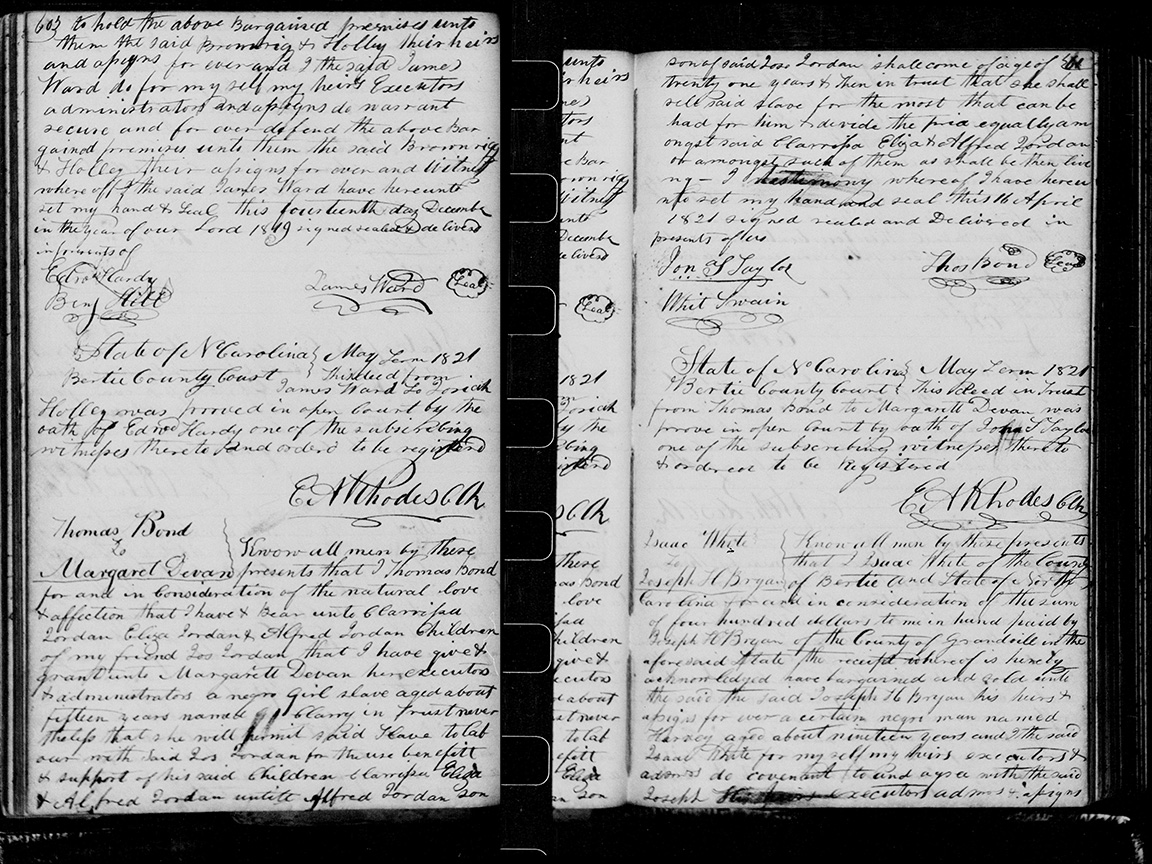 603 to hold the above Bargained premises unto
them the said Brownrig & Holley their heirs
and assigns for ever and I the said James
Ward do for my self my heirs Executors
administrators and assigns do warrant
secure and for ever defend the above Bar
gained premises unto them the said Brownrig
& Holley their assigns for ever and Witness
where off I the said James Ward have hereunto
set my hand & Seal this fourteenth day December
in the year of our Lord 1819 signed sealed & deliverd
in presents of
Edwd Hardy
James Ward Seal
Benj Hill
State of No Carolina } May Term 1821
Bertie County Court } This deed from
James Ward to Josiah
Holley was proved in open Court by the
oath of Edwd Hardy one of the subscribing
witnesses thereto and orderd to be registerd
E A Rhodes Clk
Thomas Bond
to } Know all men by these
Margaret Devan } presents that I Thomas Bond
for and in Consideration of the natural love
& affection that I have & Bear unto Clarrissa
Jordan Eliza Jordan & Alfred Jordan Children
of my friend Jos Jordan that I have give &
grant unto Margarett Devan her executors
& administrators a negro Girl slave aged about
fifteen years named Clarry in Trust never
theless that she will permit said Slave to lab
our with said Jos Jordan for the use benefitt
& support of his said Children Clarrissa Eliza
& Alfred Jordan untill Alfred Jordan son
unto
heirs
mes)
tors
nt
ve Bar
rownrig
Witness
unto
December
deliverd
Seal
1821
Josiah
by the
bing
isterd
s Clk
these
as Bond
love
ssa
hildren
give &
ecutors
d about
st never
to lab
efitt
Eliza
an son
son of said Jos Jordan shall come of age of
twenty one years & then in trust that she shall
sell said slave for the most that can be
had for him & divide the price equally am
ongst said Clarrissa Eliza & Alfred Jordan
or amongst such of them as shall be then livi
ng - I testimony whereof I have hereu
nto set my hand and seal this 16 April
1821 signed sealed and Delivered in
presents of us
Jona S Taylor
Thos Bond Seal
Whit Swain
State of No Carolina } May Term 1821
Bertie County Court } This Deed in Trust
from Thomas Bond to Margarett Devan was
prove in open Court by oath of Jona S Taylor
one of the subscribing witnesses thereto
& ordered to be Registered
E A Rhodes Clk
Isaac White } Know all men by these presents
to } that I Isaac White of the County
Joseph H Bryan of Bertie and State of North
Carolina for and in consideration of the sum
of four hundred dollars to me in hand paid by
Joseph H Bryan of the County of Granville in the
aforesaid State the receipt whereof is hereby
acknowledged have bargained and sold unto
the said the said Joseph H Bryan his heirs &
assigns for ever a certain negro man named
Harvey aged about nineteen years and I the said
Isaac White for my self my heirs executors &
admrs do covenant to and agree with the said
Joseph executors admrs & assigns